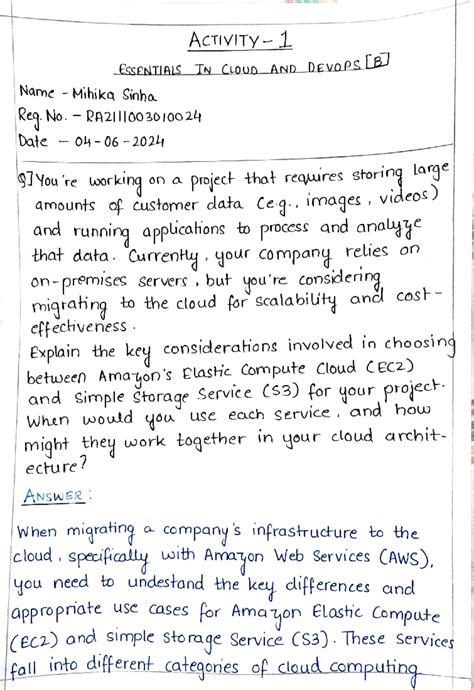 ACTIVITY - 1
ESSENTIALS IN CLOUD AND DEVOPS [B]
Name - Mihika Sinha
Reg. No. - RA2111003010024
Date - 04-06-2024
Q] You're working on a project that requires storing large
amounts of customer data (e.g., images, videos)
and running applications to process and analyze
that data. Currently, your company relies on
on-premises servers, but you're considering
migrating to the cloud for scalability and cost-
effectiveness.
Explain the key considerations involved in choosing
between Amazon's Elastic Compute Cloud (EC2)
and Simple Storage Service (S3) for your project.
When would you use each service, and how
might they work together in your cloud archit-
ecture?
ANSWER:
When migrating a company's infrastructure to the
cloud, specifically with Amazon Web Services (AWS),
you need to undestand the key differences and
appropriate use cases for Amazon Elastic Compute
(EC2) and simple storage Service (S3). These services
fall into different categories of cloud computing